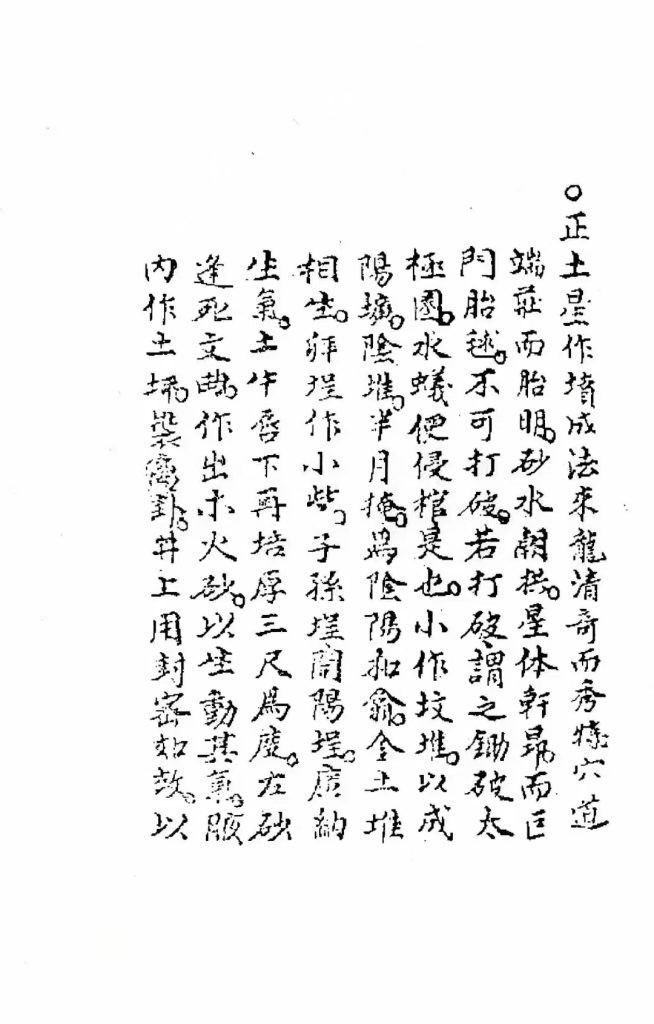 ○正土星作墳成法來龍清奇而秀特穴道
端莊而胎明。砂水朝拱。星体軒昂。而巨
門胎毬。不可打破。若打破謂之鋤破太
極圈。水蟻便侵棺是也。小作坟堆。以成
陽壙。陰堆。半月掩。為陰陽相翕。金土堆
相生。拜埕作小些。子孫埕闊陽埕。廣納
生氣。土牛唇下再培厚三尺為度。左砂
逢死文曲。作出木火砂。以生動其氣。脹
內作土塀。築卦。井上用封密如故。以